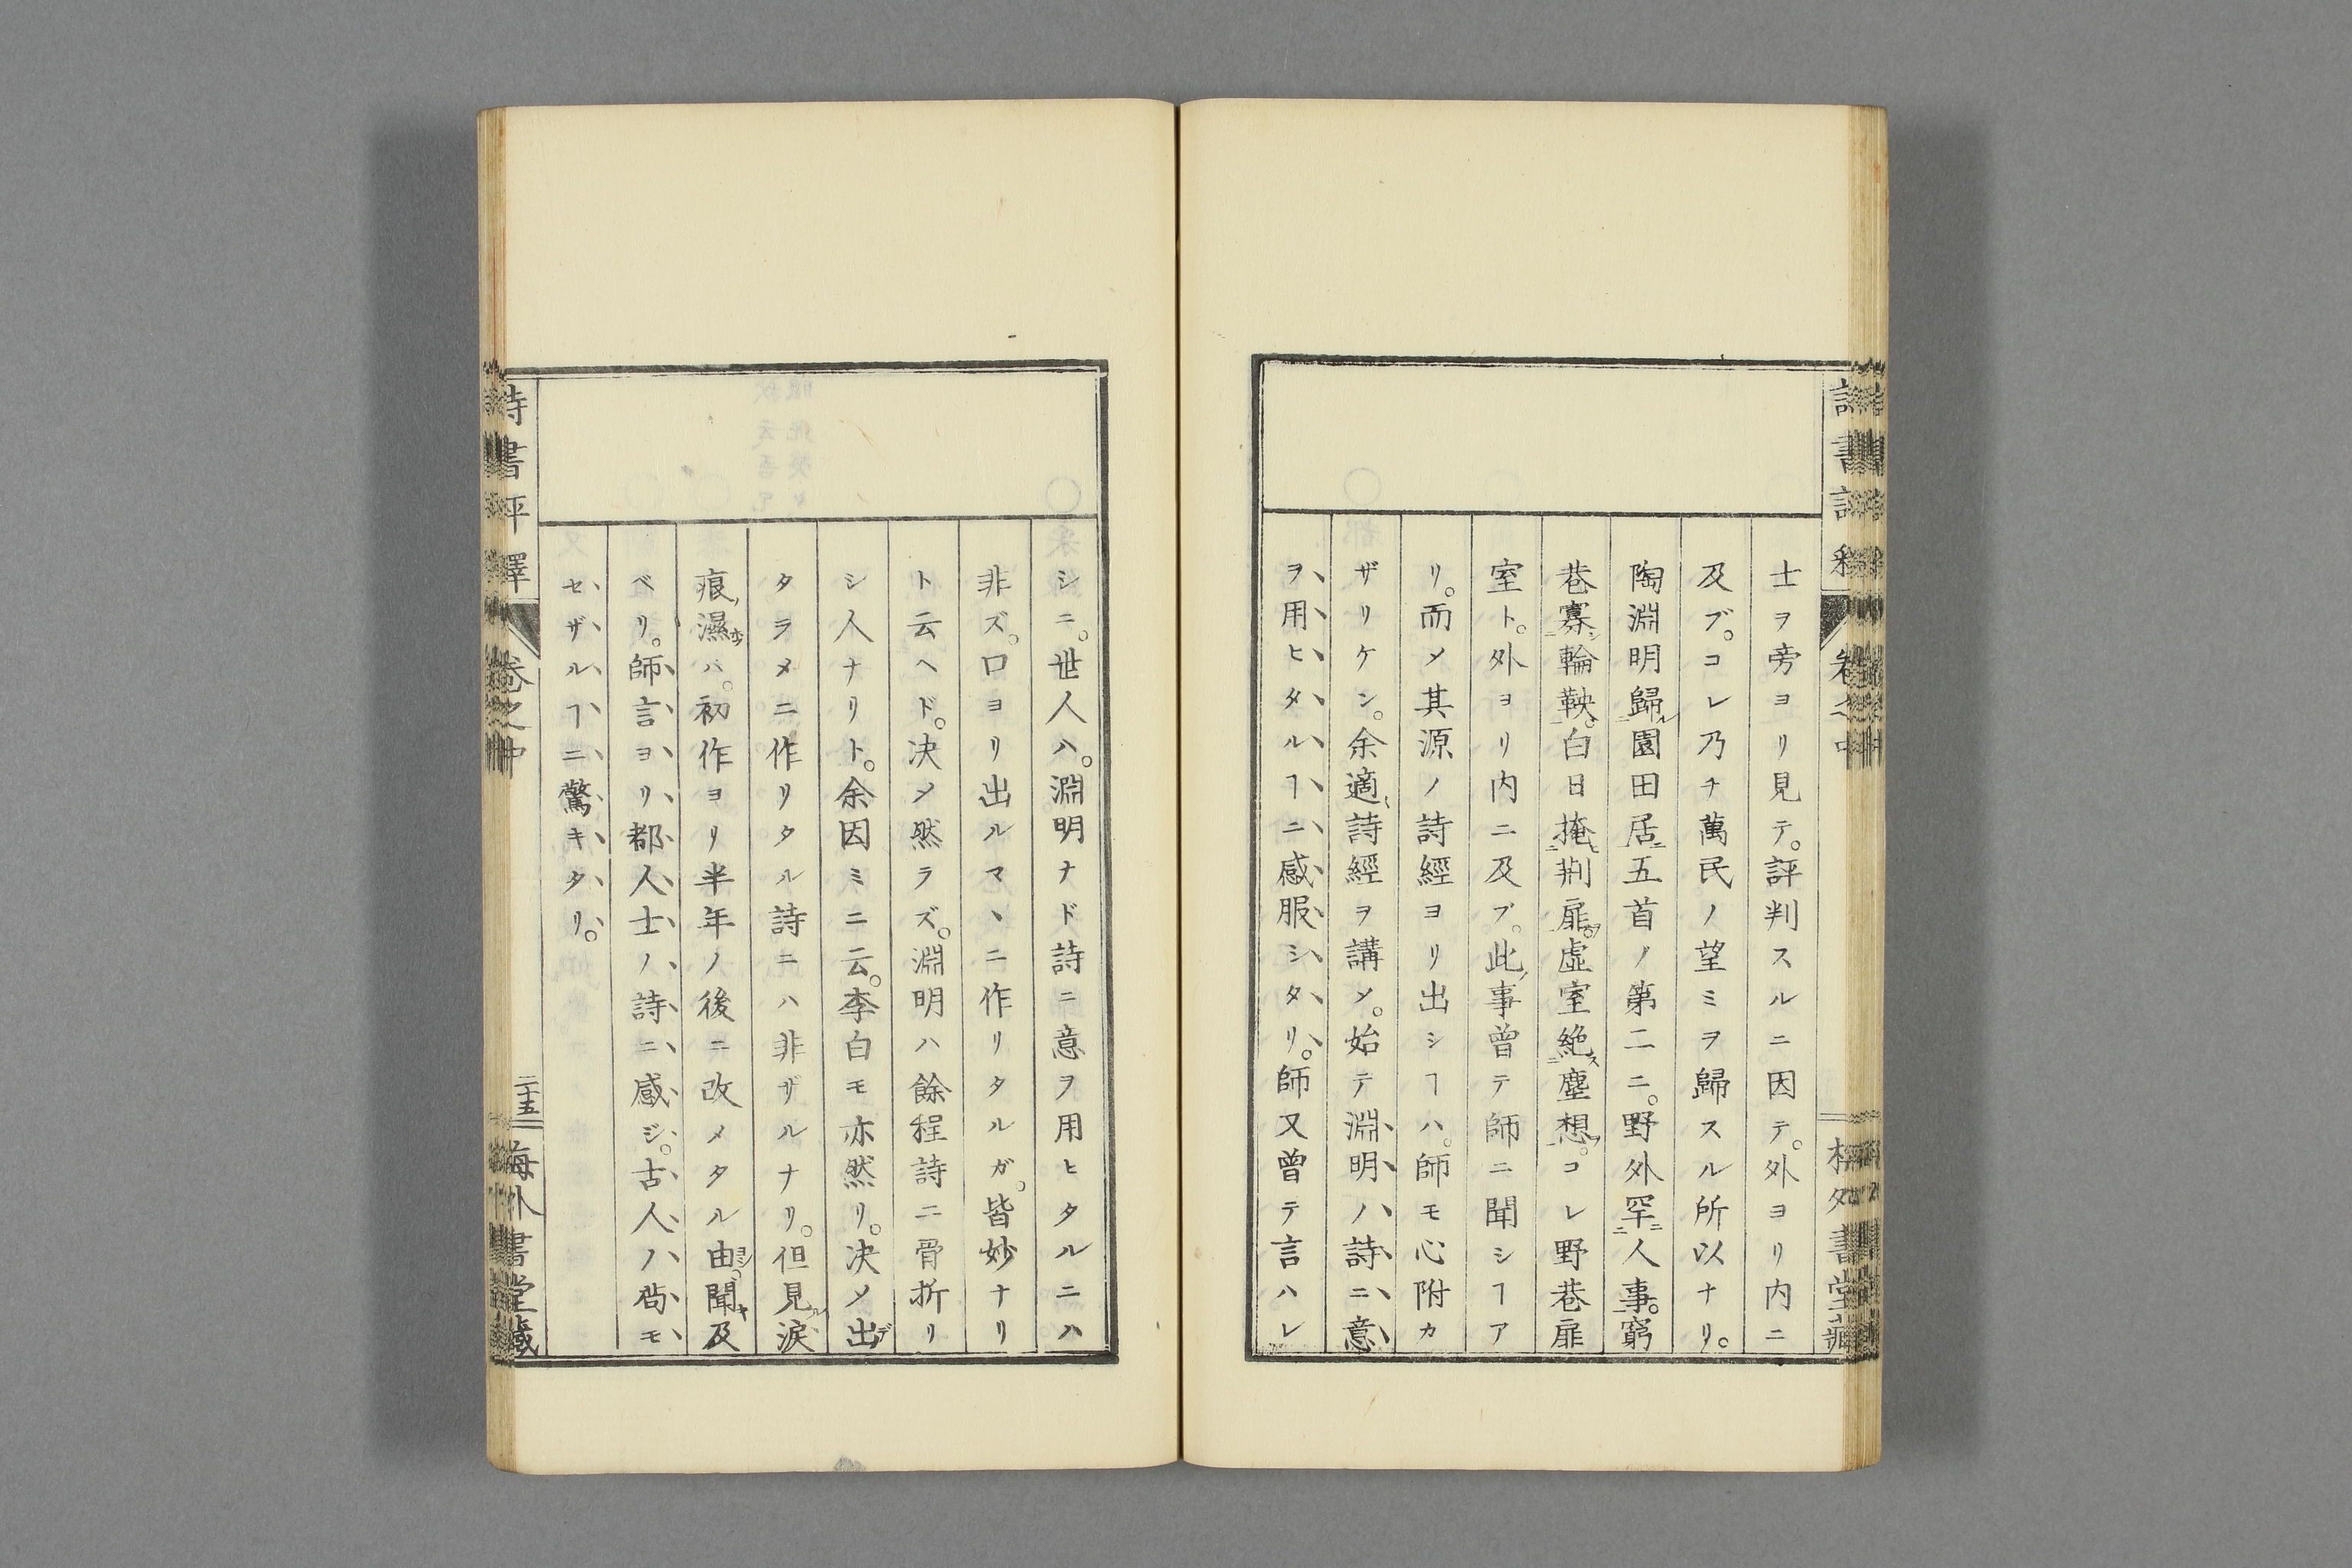 士ヲ旁ヨリ見テ。評判スルニ因テ。外ヨリ内ニ
及ブ。コレ乃チ萬民ノ望ミヲ歸スル所以ナリ。
陶淵明歸ル二園田居ニ一五首ノ第二ニ。野外罕ニ二人事一。窮
巷寡シ二輪鞅一。白日掩ヒ二荆扉ヲ一。虚室絶ス二塵想ヲ一。コレ野巷扉
室ト。外ヨリ内ニ及ブ。此ノ事曾テ師ニ聞シヿア
リ。而〆其源ノ詩經ヨリ出シヿハ。師モ心附カ
ザリケン。余適〻詩經ヲ講〆。始テ淵明ハ詩ニ意
ヲ用ヒタルヿニ感服シタリ。師又曾テ言ハレ
シニ。世人ハ。淵明ナド詩ニ意ヲ用ヒタルニハ
非ズ。口ヨリ出ルマヽニ作リタルガ。皆妙ナリ
ト云ヘド。决〆然ラズ。淵明ハ餘程詩ニ骨折リ
シ人ナリト。余因ミニ云。李白モ亦然リ。决〆出デ
タラメニ作リタル詩ニハ非ザルナリ。但見ル涙
痕ノ濕ホバ。初作ヨリ半年ノ後ニ改メタル由シ。聞キ及
ベリ。師言ヨリ都人士ノ詩ニ感ジ。古人ノ苟モ
セザルヿニ驚キタリ。
詩書評釋
卷之中
二十五
梅外書堂藏